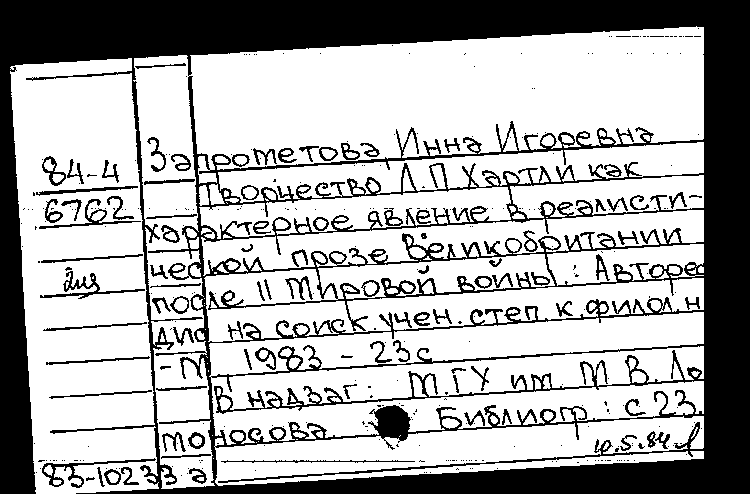 Запрометова Инна Игоревна
84-4
Творчество Л.П Хартли как
6762
характерное явление в реалисти-
ческой прозе Великобритании
после II Мировой войны.: Авторе
дис на соиск. учен. степ. к. филол. н
- М 1983 - 23 с
В надзаг: МГУ им. М В. Ло
моносова. Библиогр.: с 23.
10.5.84
83-10233 а